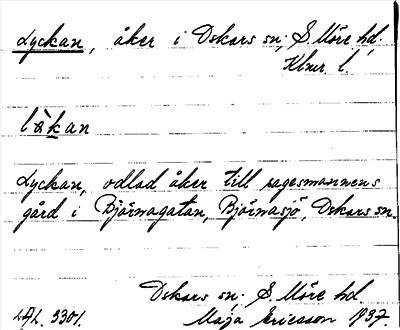 Lyckan, åker i Oskars sn, S. Möre hd.
Klmr. l.
lỳkan
Lyckan, odlad åker till sagesmannens
gård i Björnagatan, Björnasjö, Oskars sn.
Oskars sn. S. Möre hd.
LAL. 3301. Maja Ericsson 1937.